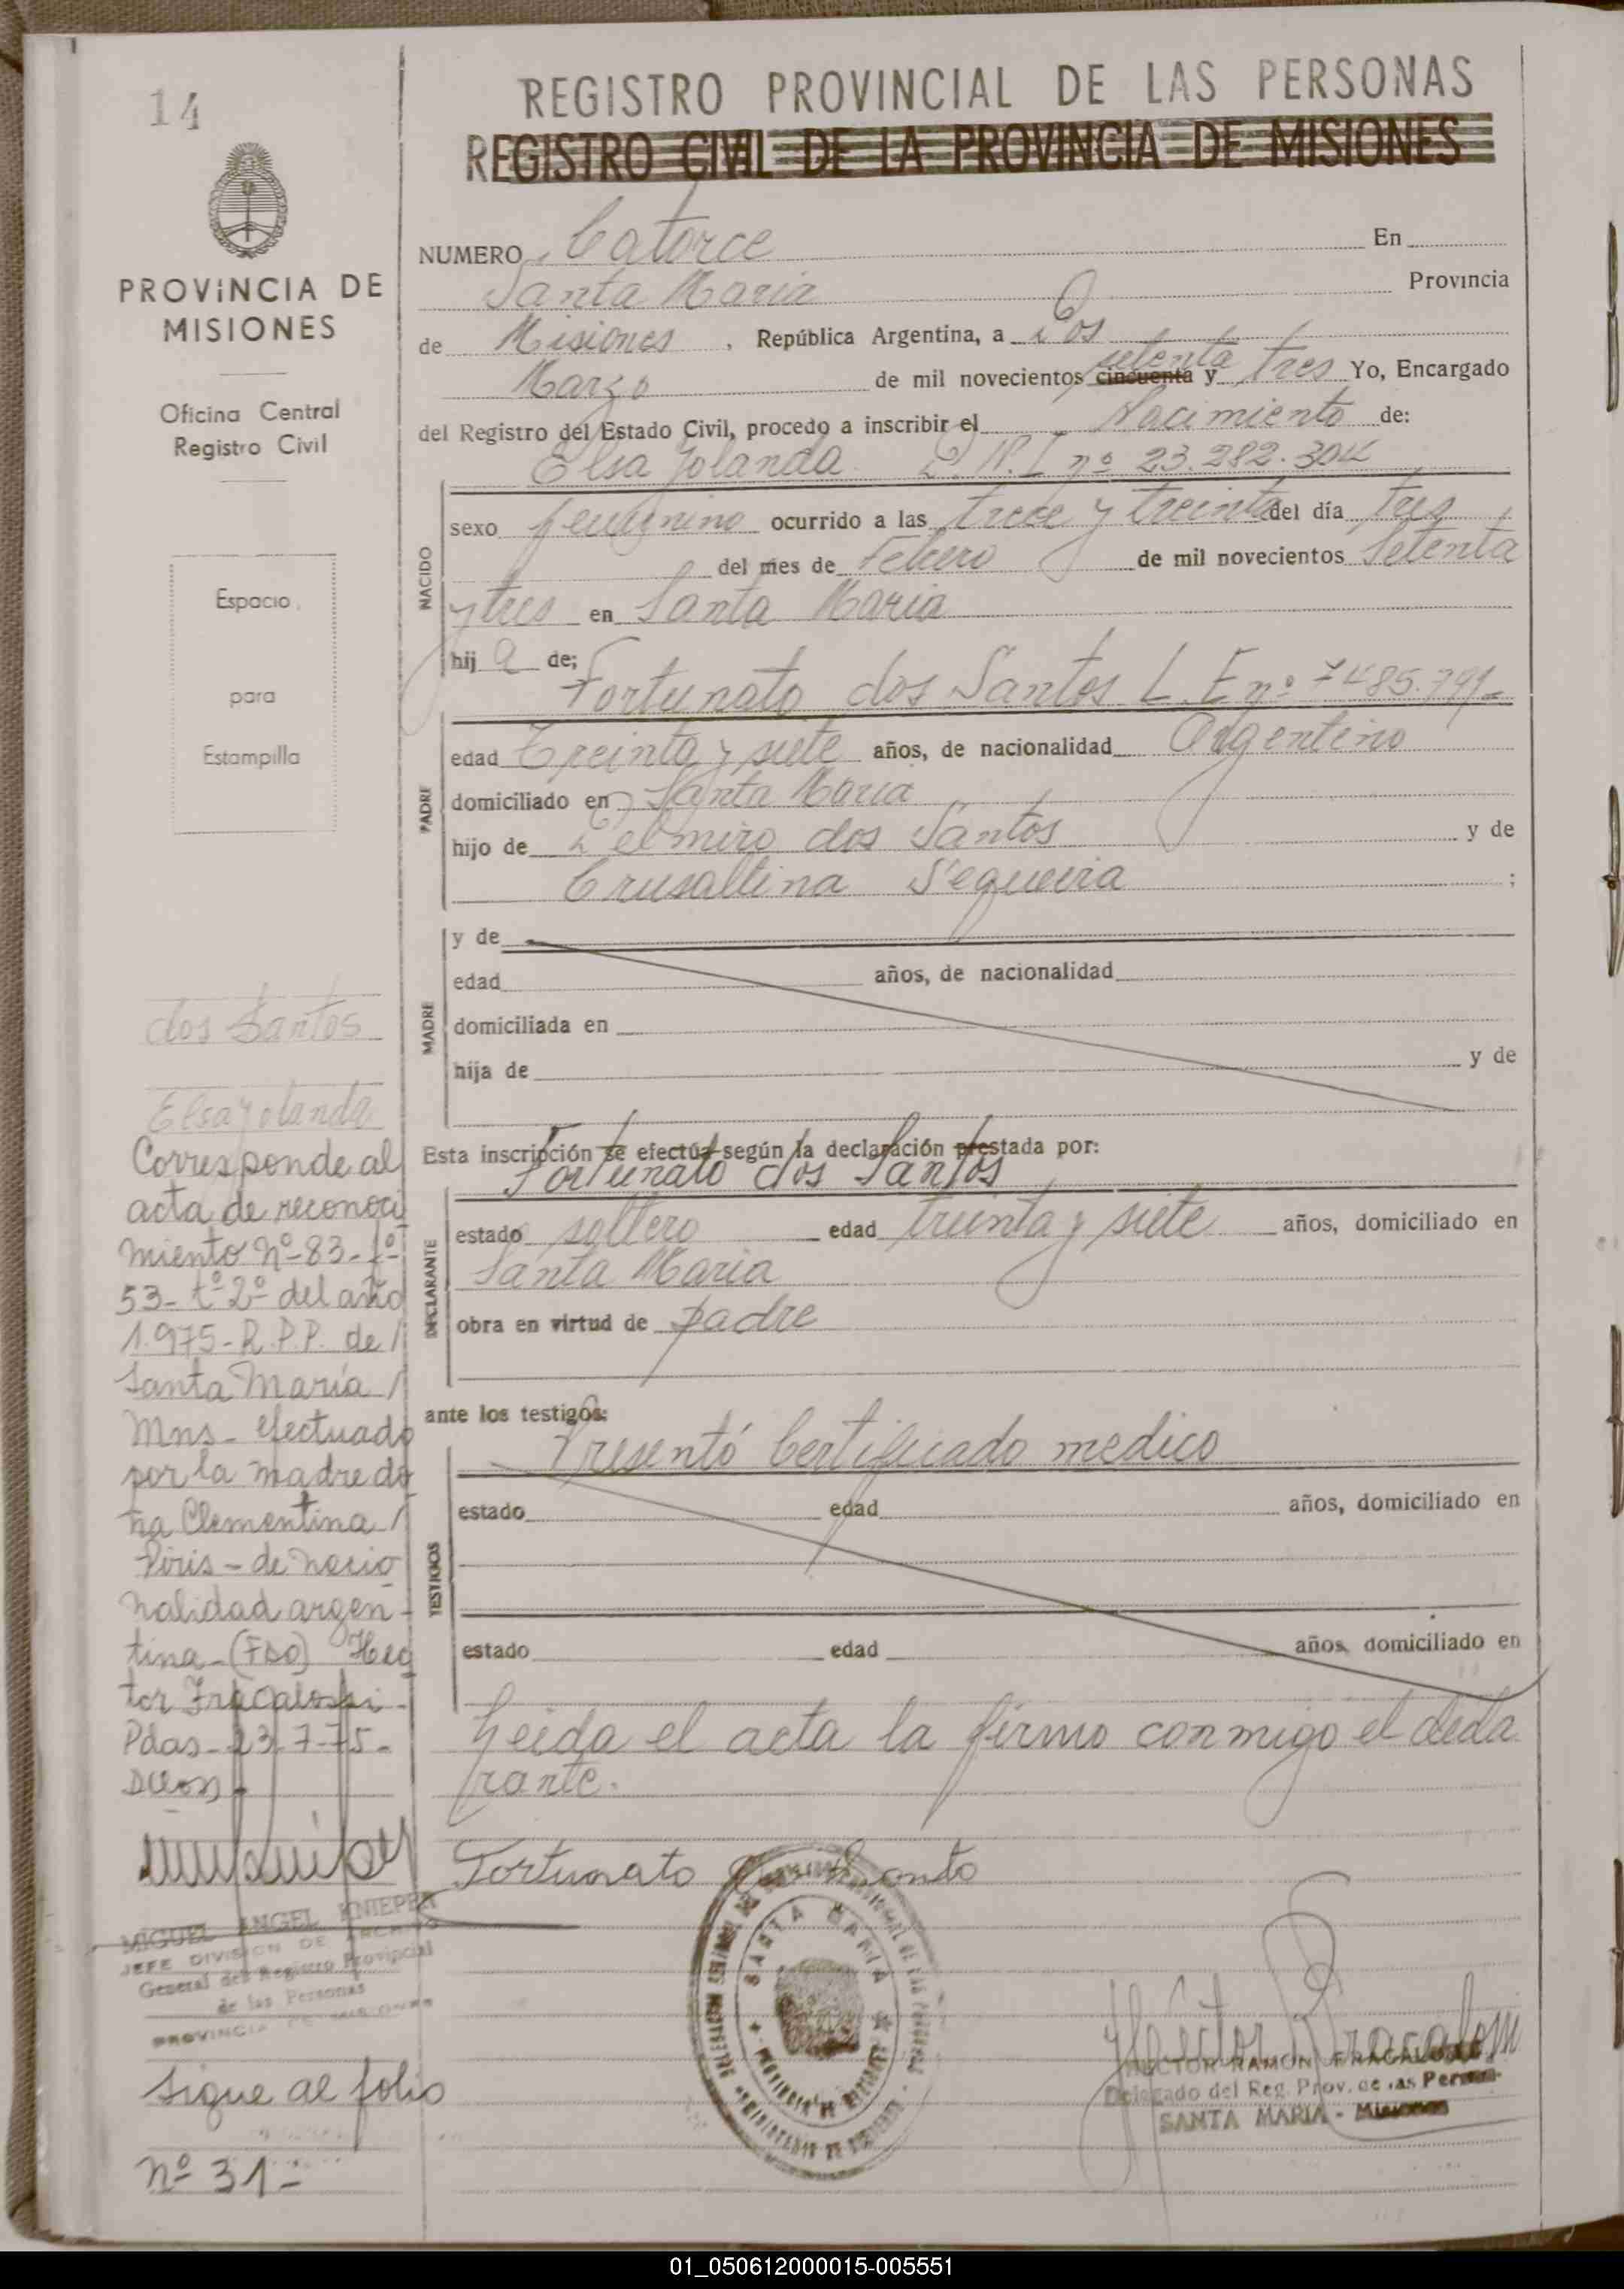 14
REGISTRO PROVINCIAL DE LAS PERSONAS
REGISTRO CIVIL DE LA PROVINCIA DE MISIONES
PROVINCIA DE
MISIONES
Oficina Central
Registro Civil
Espacio
para
Estampilla
NUMERO Catorce En
Santa Maria Provincia
de Misiones, República Argentina, a Dos
Marzo de mil novecientos cincuenta setenta y tres Yo, Encargado
del Registro del Estado Civil, procedo a inscribir el Nacimiento de:
Elsa Yolanda D.N.I nº 23.282.304
NACIDO
sexo femenino ocurrido a las trece y treinta del día tres
del mes de Febrero de mil novecientos Setenta
y tres en Santa Maria
hij a de;
Fortunato dos Santos L.E nº 7485.791-
PADRE
edad Treinta y siete años, de nacionalidad Argentino
domiciliado en Santa Maria
hijo de Delmiro dos Santos y de
Crusaltina Sequeira ;
MADRE
y de
edad años, de nacionalidad
domiciliada en
hija de y de
Esta inscripción se efectúa según la declaración prestada por:
Fortunato dos Santos
DECLARANTE
estado soltero edad treinta y siete años, domiciliado en
Santa Maria
obra en virtud de padre
ante los testigos:
Presentó Certificado medico
TESTIGOS
estado edad años, domiciliado en
estado edad años, domiciliado en
Leida el acta la firmo conmigo el decla
rante.
Fortunato
dos Santos
Elsa Yolanda
Corresponde al
acta de reconoci
miento nº 83- fº
53- tº 2º del año
1.975- R.P.P. de /
Santa María /
Mns- efectuado
por la madre do
ña Clementina /
Piris - de nacio
nalidad argen-
tina-(FDO) Hec
tor Fracalossi-
Pdas- 23-7-75-
MIGUEL ANGEL KNIEPER
JEFE DIVISION DE ARCHIVO
General del Registro Provincial
de las Personas
PROVINCIA DE MISIONES
Sigue al folio
nº 31-
SANTA MARIA
PROVINCIA DE MISIONES
HECTOR RAMON FRACALOSSI
Delegado del Reg. Prov. de las Personas
SANTA MARIA - Misiones
01_050612000015-005551